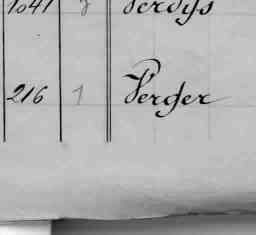 1041 Verdys
216 1 Verger